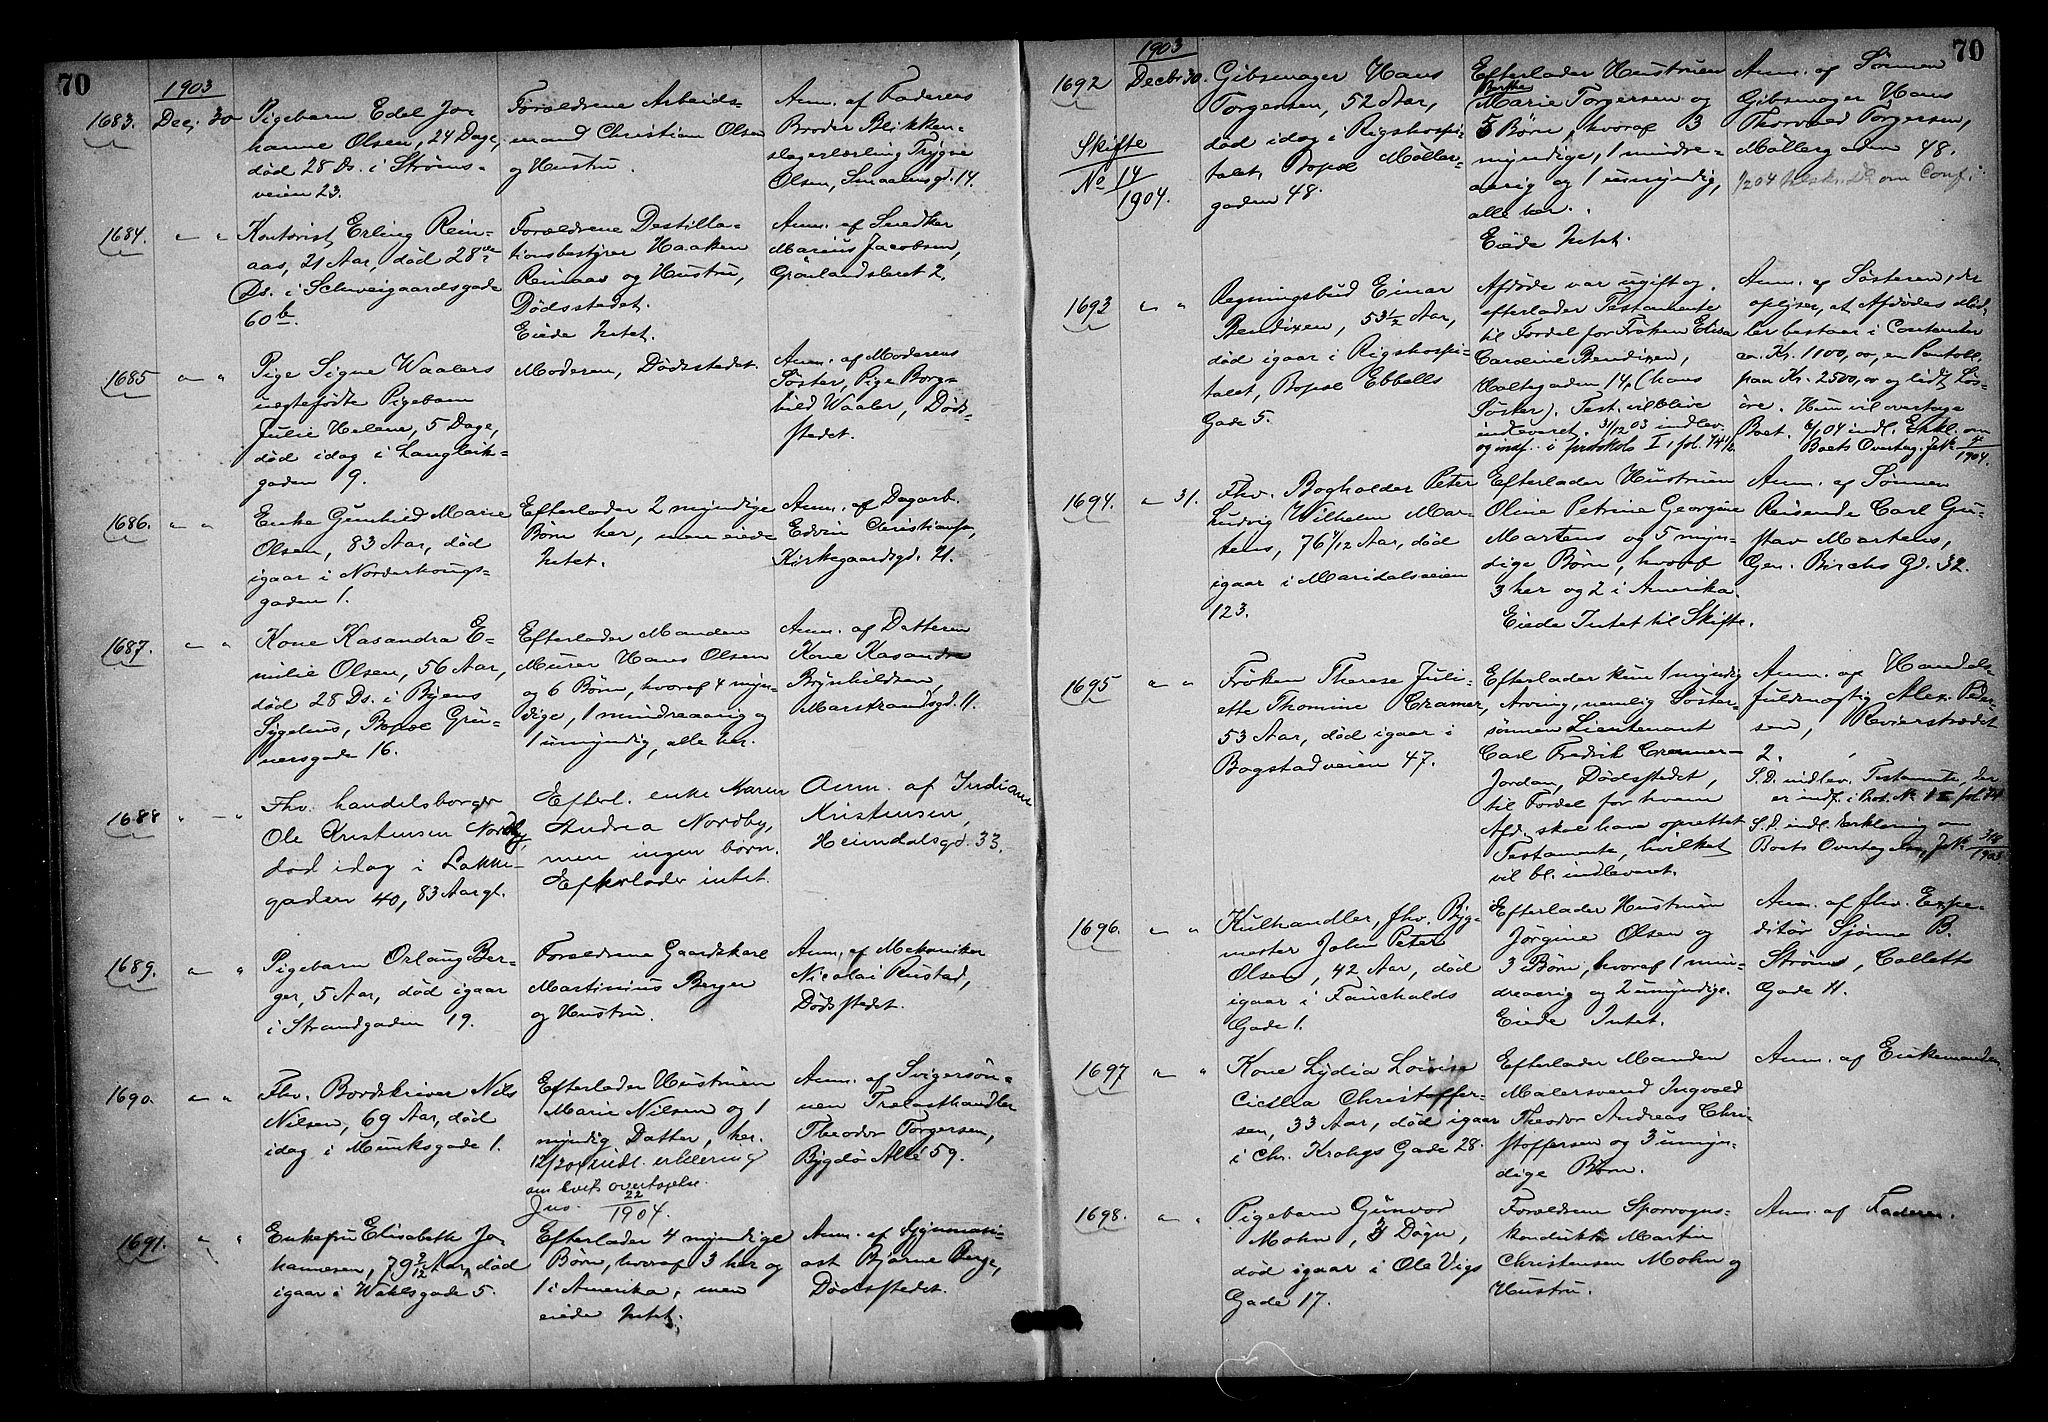 70
1903
1683. Dec. 30
Pigebarn Edel Jo-
hanne Olsen, 24 Dage,
död 28 Ds. i Ströms-
veien 23.
Forældrene Arbeids-
mand Christian Olsen
og Hustru.
Anm. af Faderens
Broder Blikken-
slagerlærling Trygve
Olsen, Smaalensgd. 14.
1684. " "
Kontorist Erling Rein-
aas, 21 Aar, död 28de
Ds. i Schweigaardsgade
60 b.
Forældrene Destilla-
tionsbestyrer Haaken
Reinaas og Hustru,
Dödsstedet.
Eiede Intet.
Anm. af Snedker
Marius Jacobsen,
Grönlandsleret 2.
1685 " "
Pige Signe Waalers
uegtefödte Pigebarn
Julie Helene, 5 Dage,
död idag i Langleik-
gaden 9.
Moderen, Dödsstedet.
Anm. af Moderens
Söster, Pige Borg-
hild Waaler, Döds-
stedet.
1686. " "
Enke Gunhild Marie
Olsen, 83 Aar, död
igaar i Norderhougs-
gaden 1.
Efterlader 2 myndige
Börn her, men eiede
Intet.
Anm. af Dagarb.
Edvin Christiansen,
Kirkegaardsgd. 21.
1687. " "
Kone Kasandra E-
milie Olsen, 56 Aar,
död 28 Ds. i Byens
Sygehus, Bopæl Grü-
nersgade 16.
Efterlader Manden
Murer Hans Olsen
og 6 Börn, hvoraf 4 myn-
dige, 1 mindreaarig og
1 umyndig, alle her.
Anm. af Datteren
Kone Kasandra
Brynhildsen,
Marstrandsgd. 11.
1688 " "
Fhv. handelsborger
Ole Kristensen Nordby,
död idag i Lakke-
gaden 40, 83 Aar gl.
Efterl. enke Maren
Andrea Nordby,
men ingen börn.
Efterlader intet.
Anm. af
Kristensen,
Heimdalsgd. 33.
1689. " "
Pigebarn Orlaug Ber-
ger, 5 Aar, död igaar
i Strandgaden 19.
Forældrene Gaardskarl
Martinius Berger
og Hustru.
Anm. af Mekaniker
Nicolai Rustad,
Dödsstedet.
1690. " "
Fhv. Bordskriver Nils
Nilsen, 69 Aar, död
idag i Munksgade 1.
Efterlader Hustruen
Marie Nilsen og 1
myndig Datter, her.
12/2 04 indl. erklering
om boets overtagelse.
Jno. 22/1904.
Anm. af Svigersön-
nen Trelasthandler
Theodor Torgersen,
Bygdö Allé 59.
1691. " "
Enkefru Elisabeth Jo-
hannesen, 79 3/12 Aar, död
igaar i Wahlsgade 5.
Efterlader 4 myndige
Börn, hvoraf 3 her og
1 i Amerika, men
eiede Intet.
Anm. af Gymnasi-
ast Bjarne Berge,
Dödsstedet.
70
1903
1692 Decbr 30.
Skifte
No 14/1904.
Gibsmager Hans
Torgersen, 52 Aar,
död idag i Rigshospi-
talet, Bopæl Möller-
gaden 48.
Efterlader Hustruen
Marie Torgersen og
5 Börn, hvoraf 3
myndige, 1 mindre-
aarig og 1 umyndig,
alle her.
Eiede Intet.
Anm. af Sönnen
Gibsmager Hans
Thorvald Torgersen,
Möllergaden 48.
1/2 04 om Conf.
1693 " "
Regningsbud Einar
Bendixen, 53 1/2 Aar,
död igaar i Rigshospi-
talet, Bopæl Ebbells
Gade 5.
Afdöde var ugift og
efterlader Testamente
til Fordel for Fröken Elisa
Caroline Bendixen,
Holtegaden 14, (hans
Söster). Test. vil blive
indleveret. 31/12 03 indlev.
og indf. i protokol I, fol. 74 1/2.
Anm. af Sösteren, der
oplyser, at Afdödes Mid-
ler bestaar i Contanter
ca. Kr. 1100,00, en Pantobl.
paa Kr. 2500,00 og lidt Lös-
öre. Hun vil overtage
Boet. 6/1 04 indl. Erkl. om
Boets Overtag. Jnk. 4/1904.
1694. " 31.
Fhv. Bogholder Peter
Ludvig Wilhelm Mar-
tens, 76 4/12 Aar, död
igaar i Maridalsveien
123.
Efterlader Hustruen
Oline Petrine Georgine
Martens og 5 myn-
dige Börn, hvoraf
3 her og 2 i Amerika.
Eiede Intet til Skifte.
Anm. af Sönnen
Reisende Carl Gu-
stav Martens,
Gen. Birchs Gd. 32.
1695 " "
Fröken Therese Juli-
ette Thomine Cramer,
53 Aar, död igaar i
Bogstadveien 47.
Efterlader kun 1 myndig
Arving, nemlig Söster-
sönnen Lieutenant
Carl Fredrik Cramer-
Jordan, Dödsstedet,
til Fordel for hvem
Afd. skal have oprettet
Testamente, hvilket
vil bl. indleveret.
Anm. af Handels-
fuldmægtig Alex. Peder-
sen, Revierstrædet
2.
S.D. indlev. Testamente, der
er indf. i Prot. No I fol. 74
S.D. indl. Erklæring om
Boets Overtagelse, Jnk. 318/1903
1696. " "
Kulhandler, fhv. Byg-
mester John Peter
Olsen, 42 Aar, död
igaar i Fauchalds
Gade 1.
Efterlader Hustruen
Jörgine Olsen og
3 Börn, hvoraf 1 min-
dreaarig og 2 umyndige.
Eiede Intet.
Anm. af fhv. Expe-
ditör Sjönne B.
Ström, Colletts
Gade 11.
1697 " "
Kone Lydia Lovise
Cicilia Christoffer-
sen, 33 Aar, död igaar
i Chr. Krohgs Gade 28.
Efterlader Manden
Malersvend Ingvald
Theodor Andreas Chri-
stoffersen og 3 umyn-
dige Börn.
Anm. af Enkemanden.
1698. " "
Pigebarn Gunvor
Mohn, 3 Dögn,
död igaar i Ole Vigs
Gade 17.
Forældrene Sporvogns-
konduktör Martin
Christensen Mohn og
Hustru.
Anm. af Faderen.